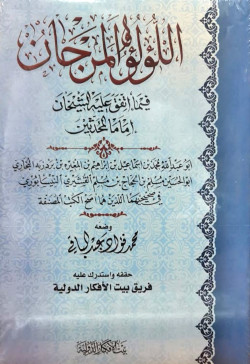 اللؤلؤ والمرجان
فيما اتفق عليه الشيخان
إماما المحدثين
أبو عبد الله محمد بن إسماعيل بن إبراهيم بن المغيرة بن بردزبه البخاري
أبو الحسين مسلم بن الحجاج بن مسلم القشيري النيسابوري
في صحيحيهما اللذين هما أصح الكتب المصنفة
وضعه
محمد فؤاد عبد الباقي
حققه واستدرك عليه
فريق بيت الأفكار الدولية
بيت الأفكار الدولية